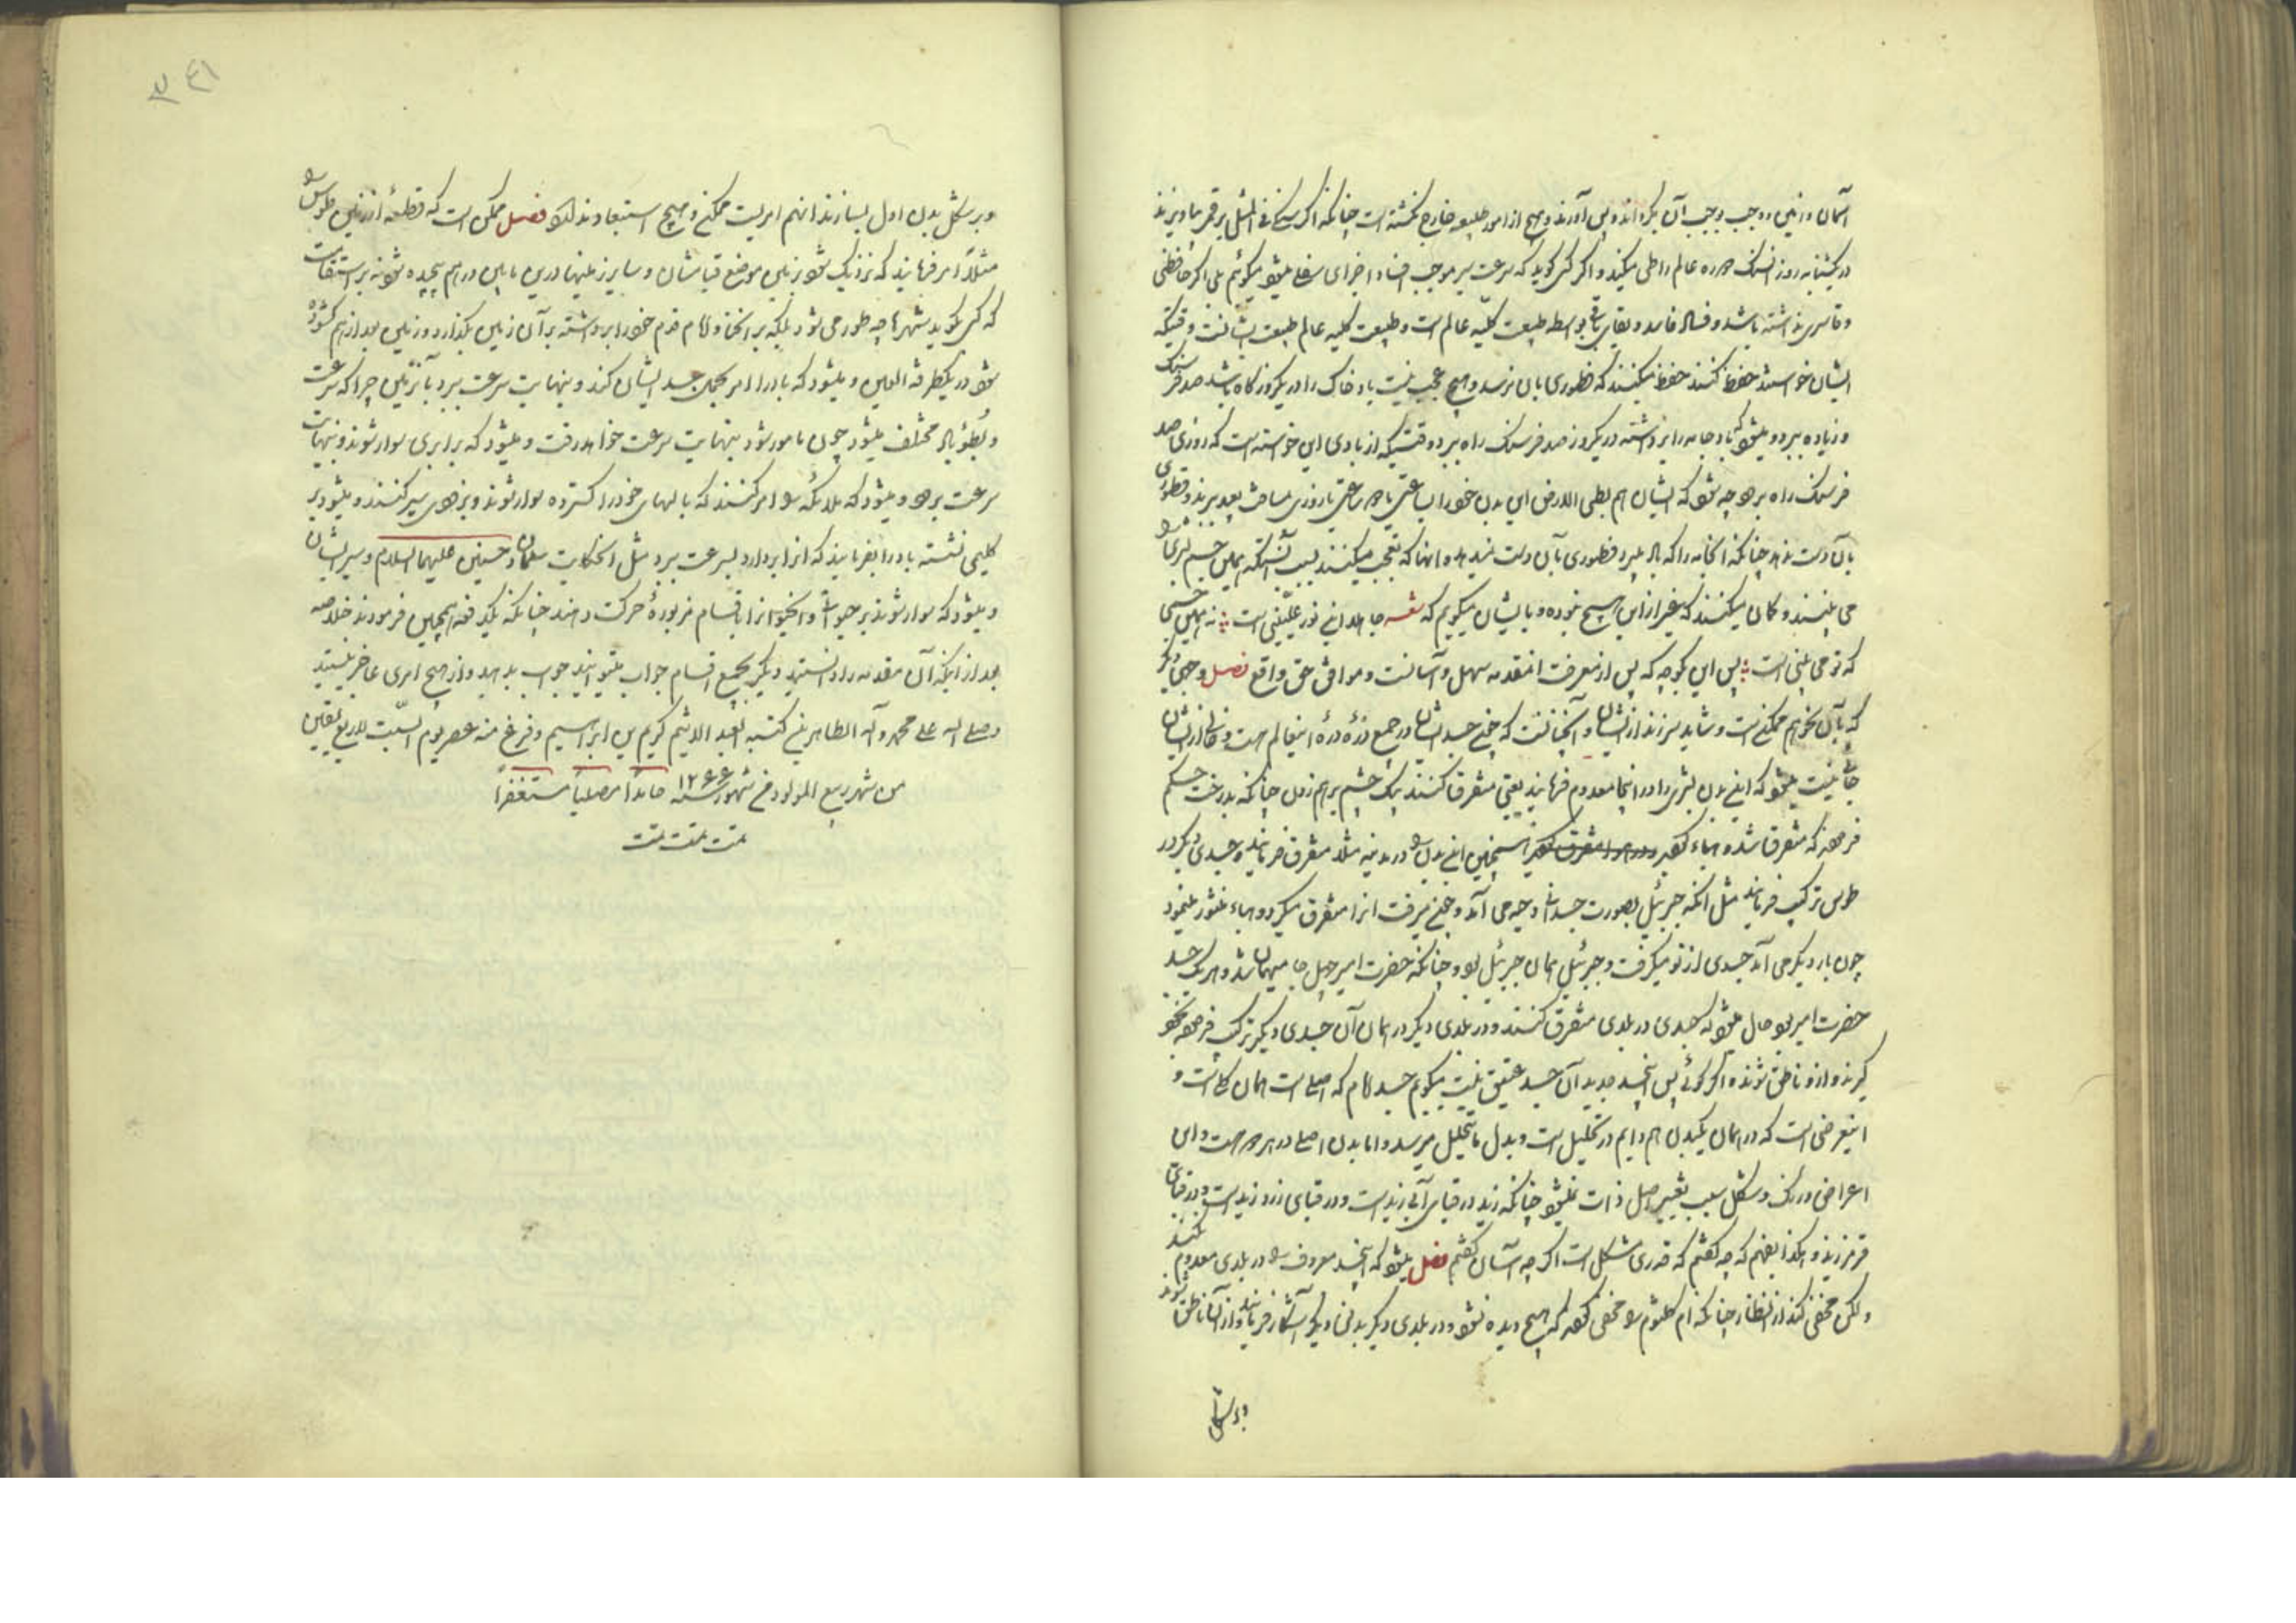 آسمان و زمین وجب بوجب آن بگرداند و پس آورند و هیچ از امور طبیعیه خارج نگشته است چنانکه اگر سنگی فی المثل بر قمر بیاویزند
در یکشبانه روز آن سنگ دوره عالم را طی میکند و اگر کسی گوید که سرعت سیر موجب افناء اجزای سفلی میشود میگوئیم بلی اگر حافظی
و قاسری نداشته باشد و فساد فاسد و بقای باقی بواسطه طبیعت کلیه عالم است و طبیعت کلیه عالم طبیعت ایشانست وقتیکه
ایشان خواستند حفظ کنند حفظ میکنند که فطوری بآن نرسد و هیچ عجب نیست باد خاک را در یکروز گاه باشد صد فرسنگ
و زیاده ببرد و میشود که باد جامه را برداشته در یکروز صد فرسنگ راه ببرد وقتیکه از بادی این خواسته است که روزی صد
فرسنگ راه برود چه شود که ایشان هم بطی الارض این بدن خود را بساعتی یا دو ساعتی یا روزی مسافت بعید ببرند و فطوری
بآن دست ندهد چنانکه آن جامه را که باد میبرد فطوری بآن دست نمیدهد و اینها که تعجب میکنند بسبب آنستکه همین جسم بشری را
می بینند و گمان میکنند که غیر از این هیچ نبوده و بایشان میگویم که شعر جامه دانی نور علیینی است نه همین جسمی
که تو می بینی است پس این یکوجه که پس از معرفت آنمقدمه سهل و آسانست و موافق حق و واقع فصل وجهی دیگر
که بآن بخواهیم ممکن است و شاید سر زند از ایشان و آن چنانست که چون جسد ایشان در جمیع ذره ذره اینعالم هست و خالی از ایشان
جائی نیست میشود که این بدن بشری را در اینجا معدوم فرمایند یعنی متفرق کنند بیک چشم برهم زدن چنانکه بدرخت حکم
فرمودند که متفرق شد و هباء گردید همچنین این بدن را در مدینه مثلا متفرق فرمایند و جسدی دیگر در
طوس ترکیب فرمایند مثل آنکه جبرئیل بصورت جسدانی دحیه می آمد و چون میرفت آنرا متفرق میکرد و هباء منثور مینمود
چون بار دیگر می آمد جسدی از نو میگرفت و جبرئیل همان جبرئیل بود و چنانکه حضرت امیر چهل جا میهمان شد و هر یک جسد
حضرت امیر بود حال میشود که جسدی در بلدی متفرق کنند و در بلدی دیگر در همان آن جسدی دیگر ترکیب فرموده بخود
گیرند و از او ناطق شوند و اگر گوئی پس این جسد جدید آن جسد عتیق نیست میگویم جسد امام که اصلی است همان یکی است و
اینعرضی است که در همان یکبدن هم دایم در تحلیل است و بدل ما یتحلل میرسد و اما بدن اصلی در هر دو هست و این
اعراضی در رنگ و شکل سبب تغییر اصل ذات نمیشود چنانکه زید در قبای آبی زید است و در قبای زرد زید است و در قبای
قرمز زید و هکذا بفهم که چه گفتم که قدری مشکل است اگر چه آسان گفتم فصل میشود که این جسد معروف را در بلدی معدوم نکنند
ولکن مخفی کنند از انظار چنانکه ام کلثوم را مخفی کردند که هیچ دیده نشود و در بلدی دیگر بدنی دیگر آشکار فرمایند و از آن ناطق شوند
و بر شکل
و بر شکل بدن اول بسازند اینهم امریست ممکن و هیچ استبعاد ندارد فصل ممکن است که قطعه از زمین طوس را
مثلا امر فرمایند که نزدیک شود بزمین موضع قیام ایشان و سایر زمینها در بین ما بین درهم پیچیده شود نه بر استقامت
که کسی گوید شهرها چه طور می شود بلکه بر انحناء و امام قدم خود را برداشته بر آن زمین بگذارد و زمین بعد از هم گشوده
شود در یکطرفة العین و میشود که باد را امر بحمل جسد ایشان کند و بنهایت سرعت ببرد بآنزمین چرا که سرعت
و بطؤ باد مختلف میشود چون مامور شود بنهایت سرعت خواهد رفت و میشود که بر ابری سوار شوند و بنهایت
سرعت برود و میشود که ملائکه را امر کنند که بالهای خود را گسترده سوار شوند و بزودی سیر کنند و میشود بر
گلیمی نشسته باد را بفرمایند که آنرا بردارد بسرعت ببرد مثل حکایت سلمان و حسنین علیهما السلام و سیر ایشان
و میشود که سوار شوند بر حیوانی و آنحیوان باقسام مزبوره حرکت دهند چنانکه یکدفعه همچنین فرمودند خلاصه
بعد از اینکه آن مقدمه را دانستید دیگر بجمیع اقسام جواب میتوانید جواب بدهید و از هیچ امری عاجز نیستید
و صلی الله علی محمد و آله الطاهرین کتبه العبد الاثیم کریم بن ابراهیم و فرغ منه عصر یوم السبت لاربع بقین
من شهر ربیع المولود من شهور سنه ۱۲۶۶ حامدا مصلیا مستغفرا
تمت تمت تمت